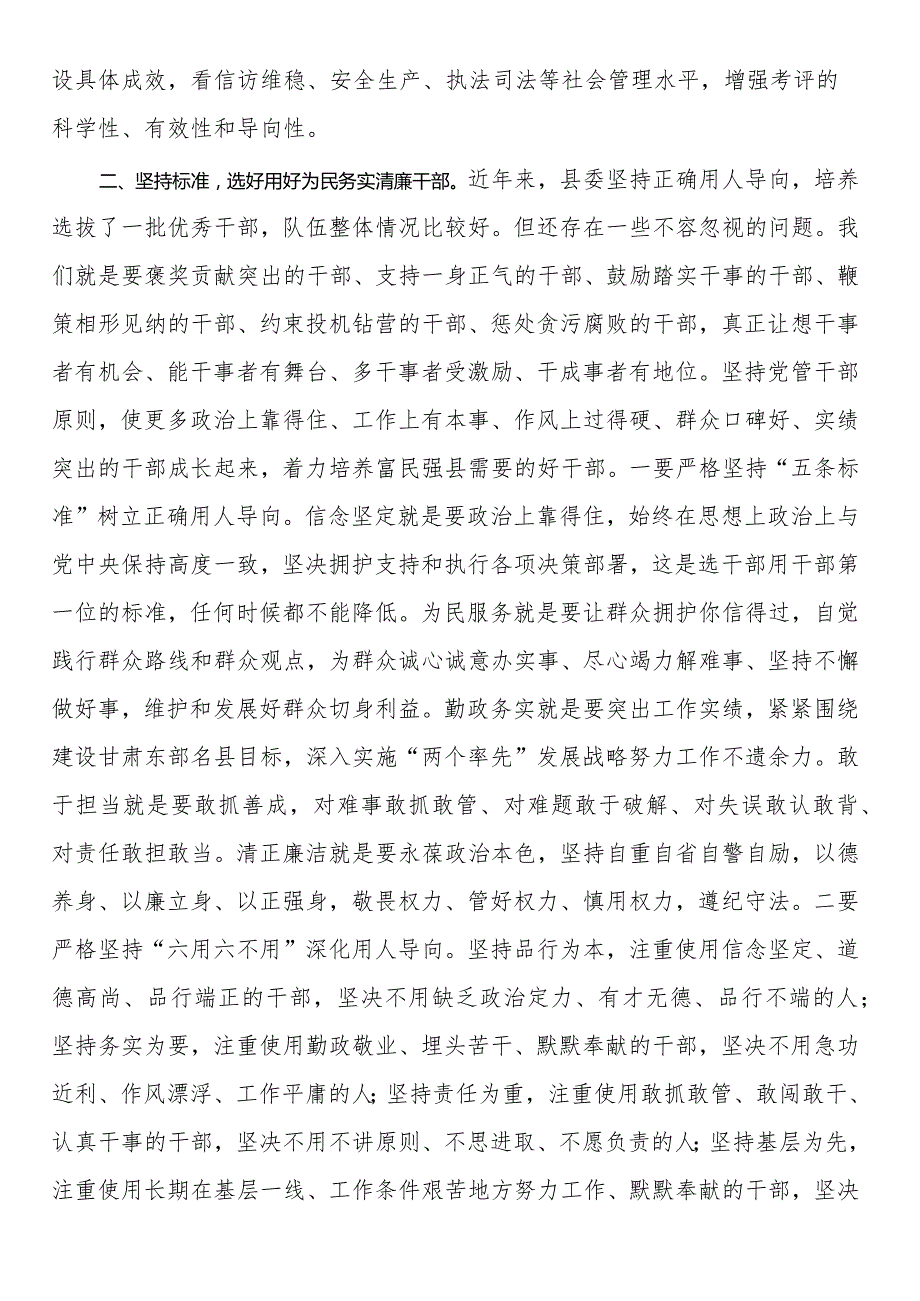 设具体成效，看信访维稳、安全生产、执法司法等社会管理水平，增强考评的
科学性、有效性和导向性。
二、坚持标准，选好用好为民务实清廉干部。近年来，县委坚持正确用人导向，培养
选拔了一批优秀干部，队伍整体情况比较好。但还存在一些不容忽视的问题。我
们就是要褒奖贡献突出的干部、支持一身正气的干部、鼓励踏实干事的干部、鞭
策相形见纳的干部、约束投机钻营的干部、惩处贪污腐败的干部，真正让想干事
者有机会、能干事者有舞台、多干事者受激励、干成事者有地位。坚持党管干部
原则，使更多政治上靠得住、工作上有本事、作风上过得硬、群众口碑好、实绩
突出的干部成长起来，着力培养富民强县需要的好干部。一要严格坚持“五条标
准”树立正确用人导向。信念坚定就是要政治上靠得住，始终在思想上政治上与
党中央保持高度一致，坚决拥护支持和执行各项决策部署，这是选干部用干部第
一位的标准，任何时候都不能降低。为民服务就是要让群众拥护你信得过，自觉
践行群众路线和群众观点，为群众诚心诚意办实事、尽心竭力解难事、坚持不懈
做好事，维护和发展好群众切身利益。勤政务实就是要突出工作实绩，紧紧围绕
建设甘肃东部名县目标，深入实施“两个率先”发展战略努力工作不遗余力。敢
于担当就是要敢抓善成，对难事敢抓敢管、对难题敢于破解、对失误敢认敢背、
对责任敢担敢当。清正廉洁就是要永葆政治本色，坚持自重自省自警自励，以德
养身、以廉立身、以正强身，敬畏权力、管好权力、慎用权力，遵纪守法。二要
严格坚持“六用六不用”深化用人导向。坚持品行为本，注重使用信念坚定、道
德高尚、品行端正的干部，坚决不用缺乏政治定力、有才无德、品行不端的人；
坚持务实为要，注重使用勤政敬业、埋头苦干、默默奉献的干部，坚决不用急功
近利、作风漂浮、工作平庸的人；坚持责任为重，注重使用敢抓敢管、敢闯敢干、
认真干事的干部，坚决不用不讲原则、不思进取、不愿负责的人；坚持基层为先，
注重使用长期在基层一线、工作条件艰苦地方努力工作、默默奉献的干部，坚决